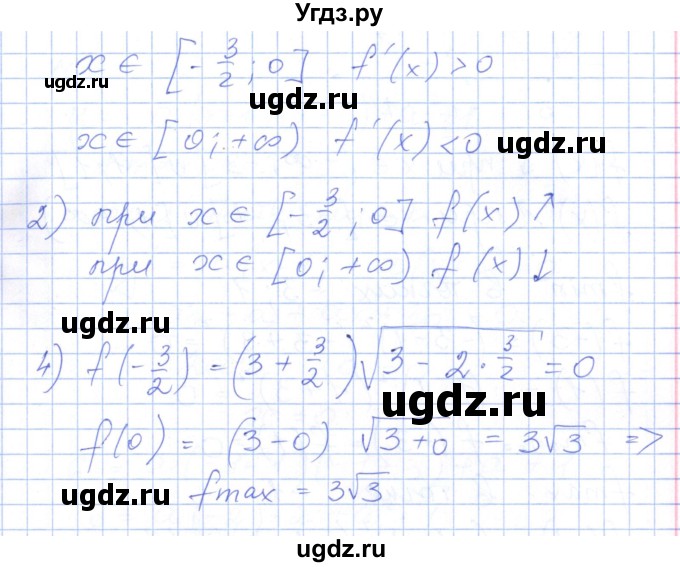 Угдз.ру
x ∈ [-3/2; 0] f'(x) > 0
ugdz.ru
ugdz.ru
x ∈ [0; +∞) f'(x) < 0
ugdz.ru
2) при x ∈ [-3/2; 0] f(x) ↑
при x ∈ [0; +∞) f(x) ↓
ugdz.ru
4) f(-3/2) = (3 + 3/2)√(3 - 2 · 3/2) = 0
ugdz.ru
f(0) = (3 - 0) √(3 + 0) = 3√3 =>
ugdz.ru
fmax = 3√3
ugdz.ru